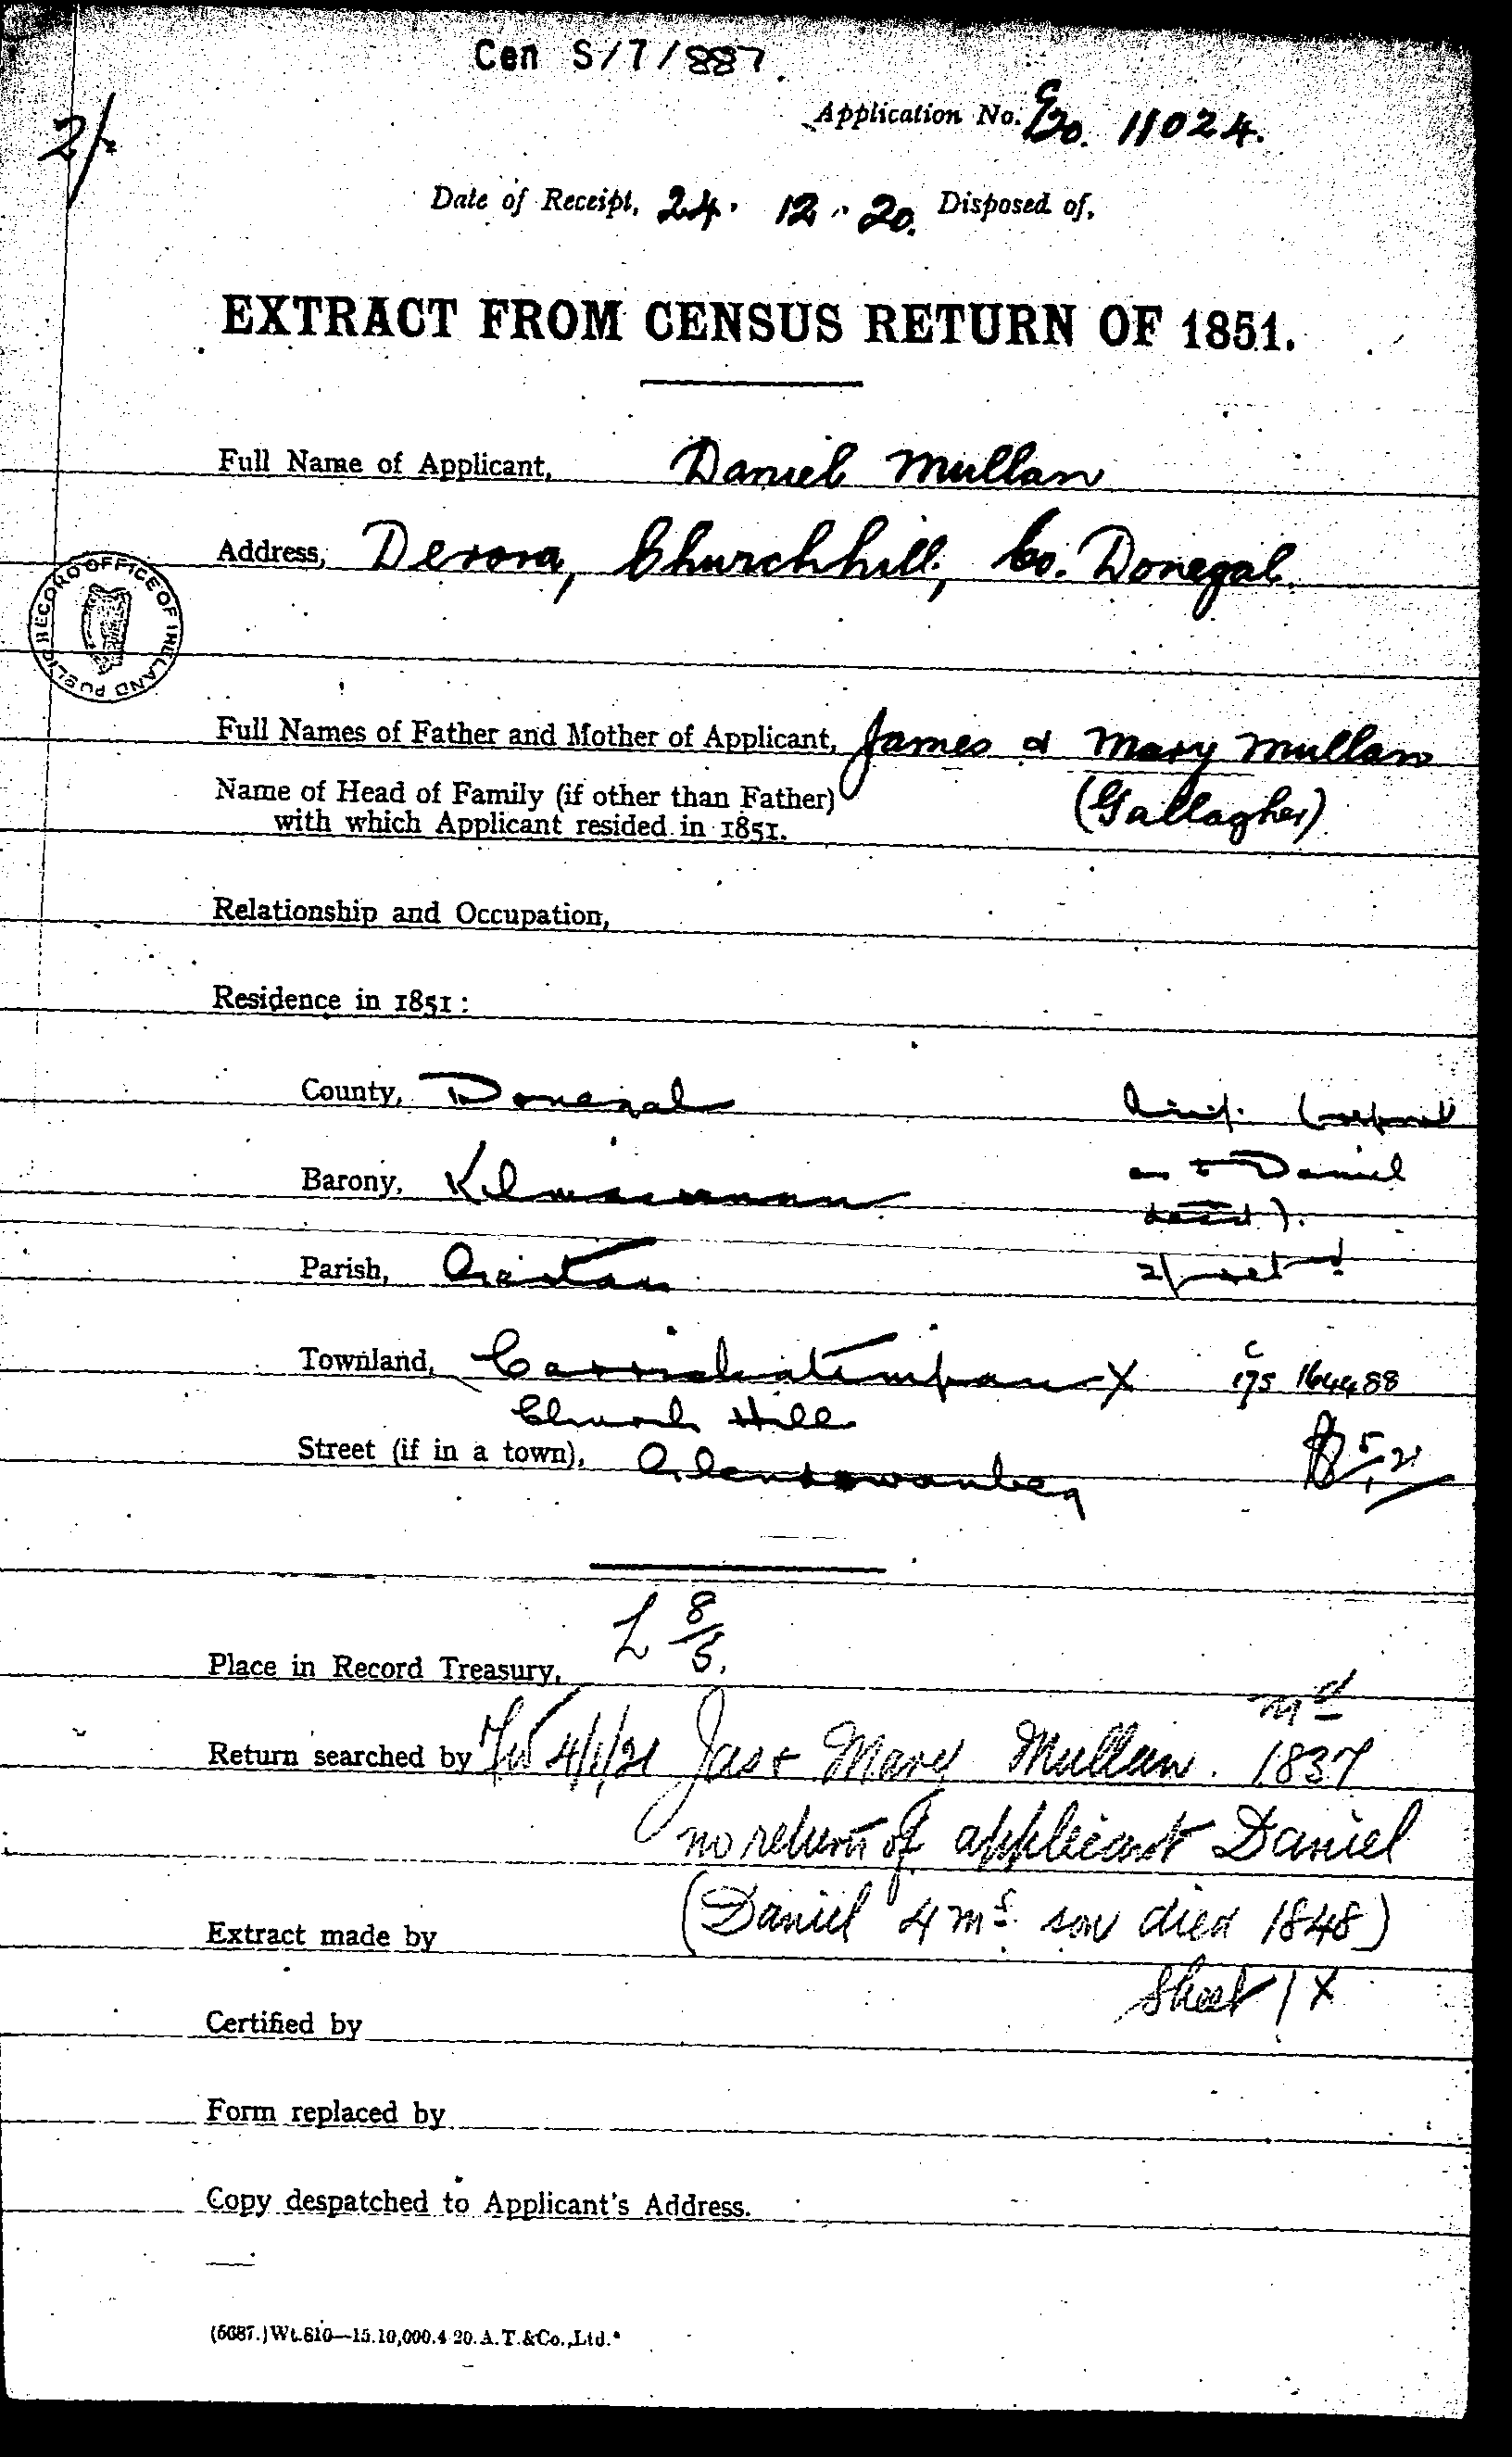 Cen S/7/887
2/-
Application No. 11024.
Date of Receipt, 24. 12. 20. Disposed of,
EXTRACT FROM CENSUS RETURN OF 1851.
Full Name of Applicant, Daniel Mullan
Address, Derora, Churchhill, Co. Donegal.
PUBLIC RECORD OFFICE OF IRELAND
Full Names of Father and Mother of Applicant, James & Mary Mullan
Name of Head of Family (if other than Father) (Gallagher)
with which Applicant resided in 1851.
Relationship and Occupation,
Residence in 1851:
County, Donegal
Barony, Kilmacrenan as to Daniel
Parish, Gartan 2/-
Townland, Carrickatimpan X C 175 164488
Church Hill
Street (if in a town), Glendowanbeg 5/1/21
Place in Record Treasury, L 8/5.
Return searched by 4/1/21 Jas + Mary Mullan. md 1837
no return of applicant Daniel
Extract made by (Daniel 4 ms. son died 1848)
Sheet 1 X
Certified by
Form replaced by
Copy despatched to Applicant's Address.
(5687.)Wt.810—15.10,000.4-20.A.T.&Co.,Ltd.